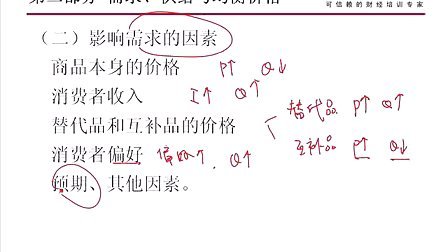 可信赖的财经培训专家
（二）影响需求的因素
商品本身的价格 P↑ Q↓
消费者收入 I↑ Q↑
替代品 P↑ Q↑
替代品和互补品的价格
互补品 P↑ Q↓
消费者偏好 偏好↑ Q↑
预期、其他因素。